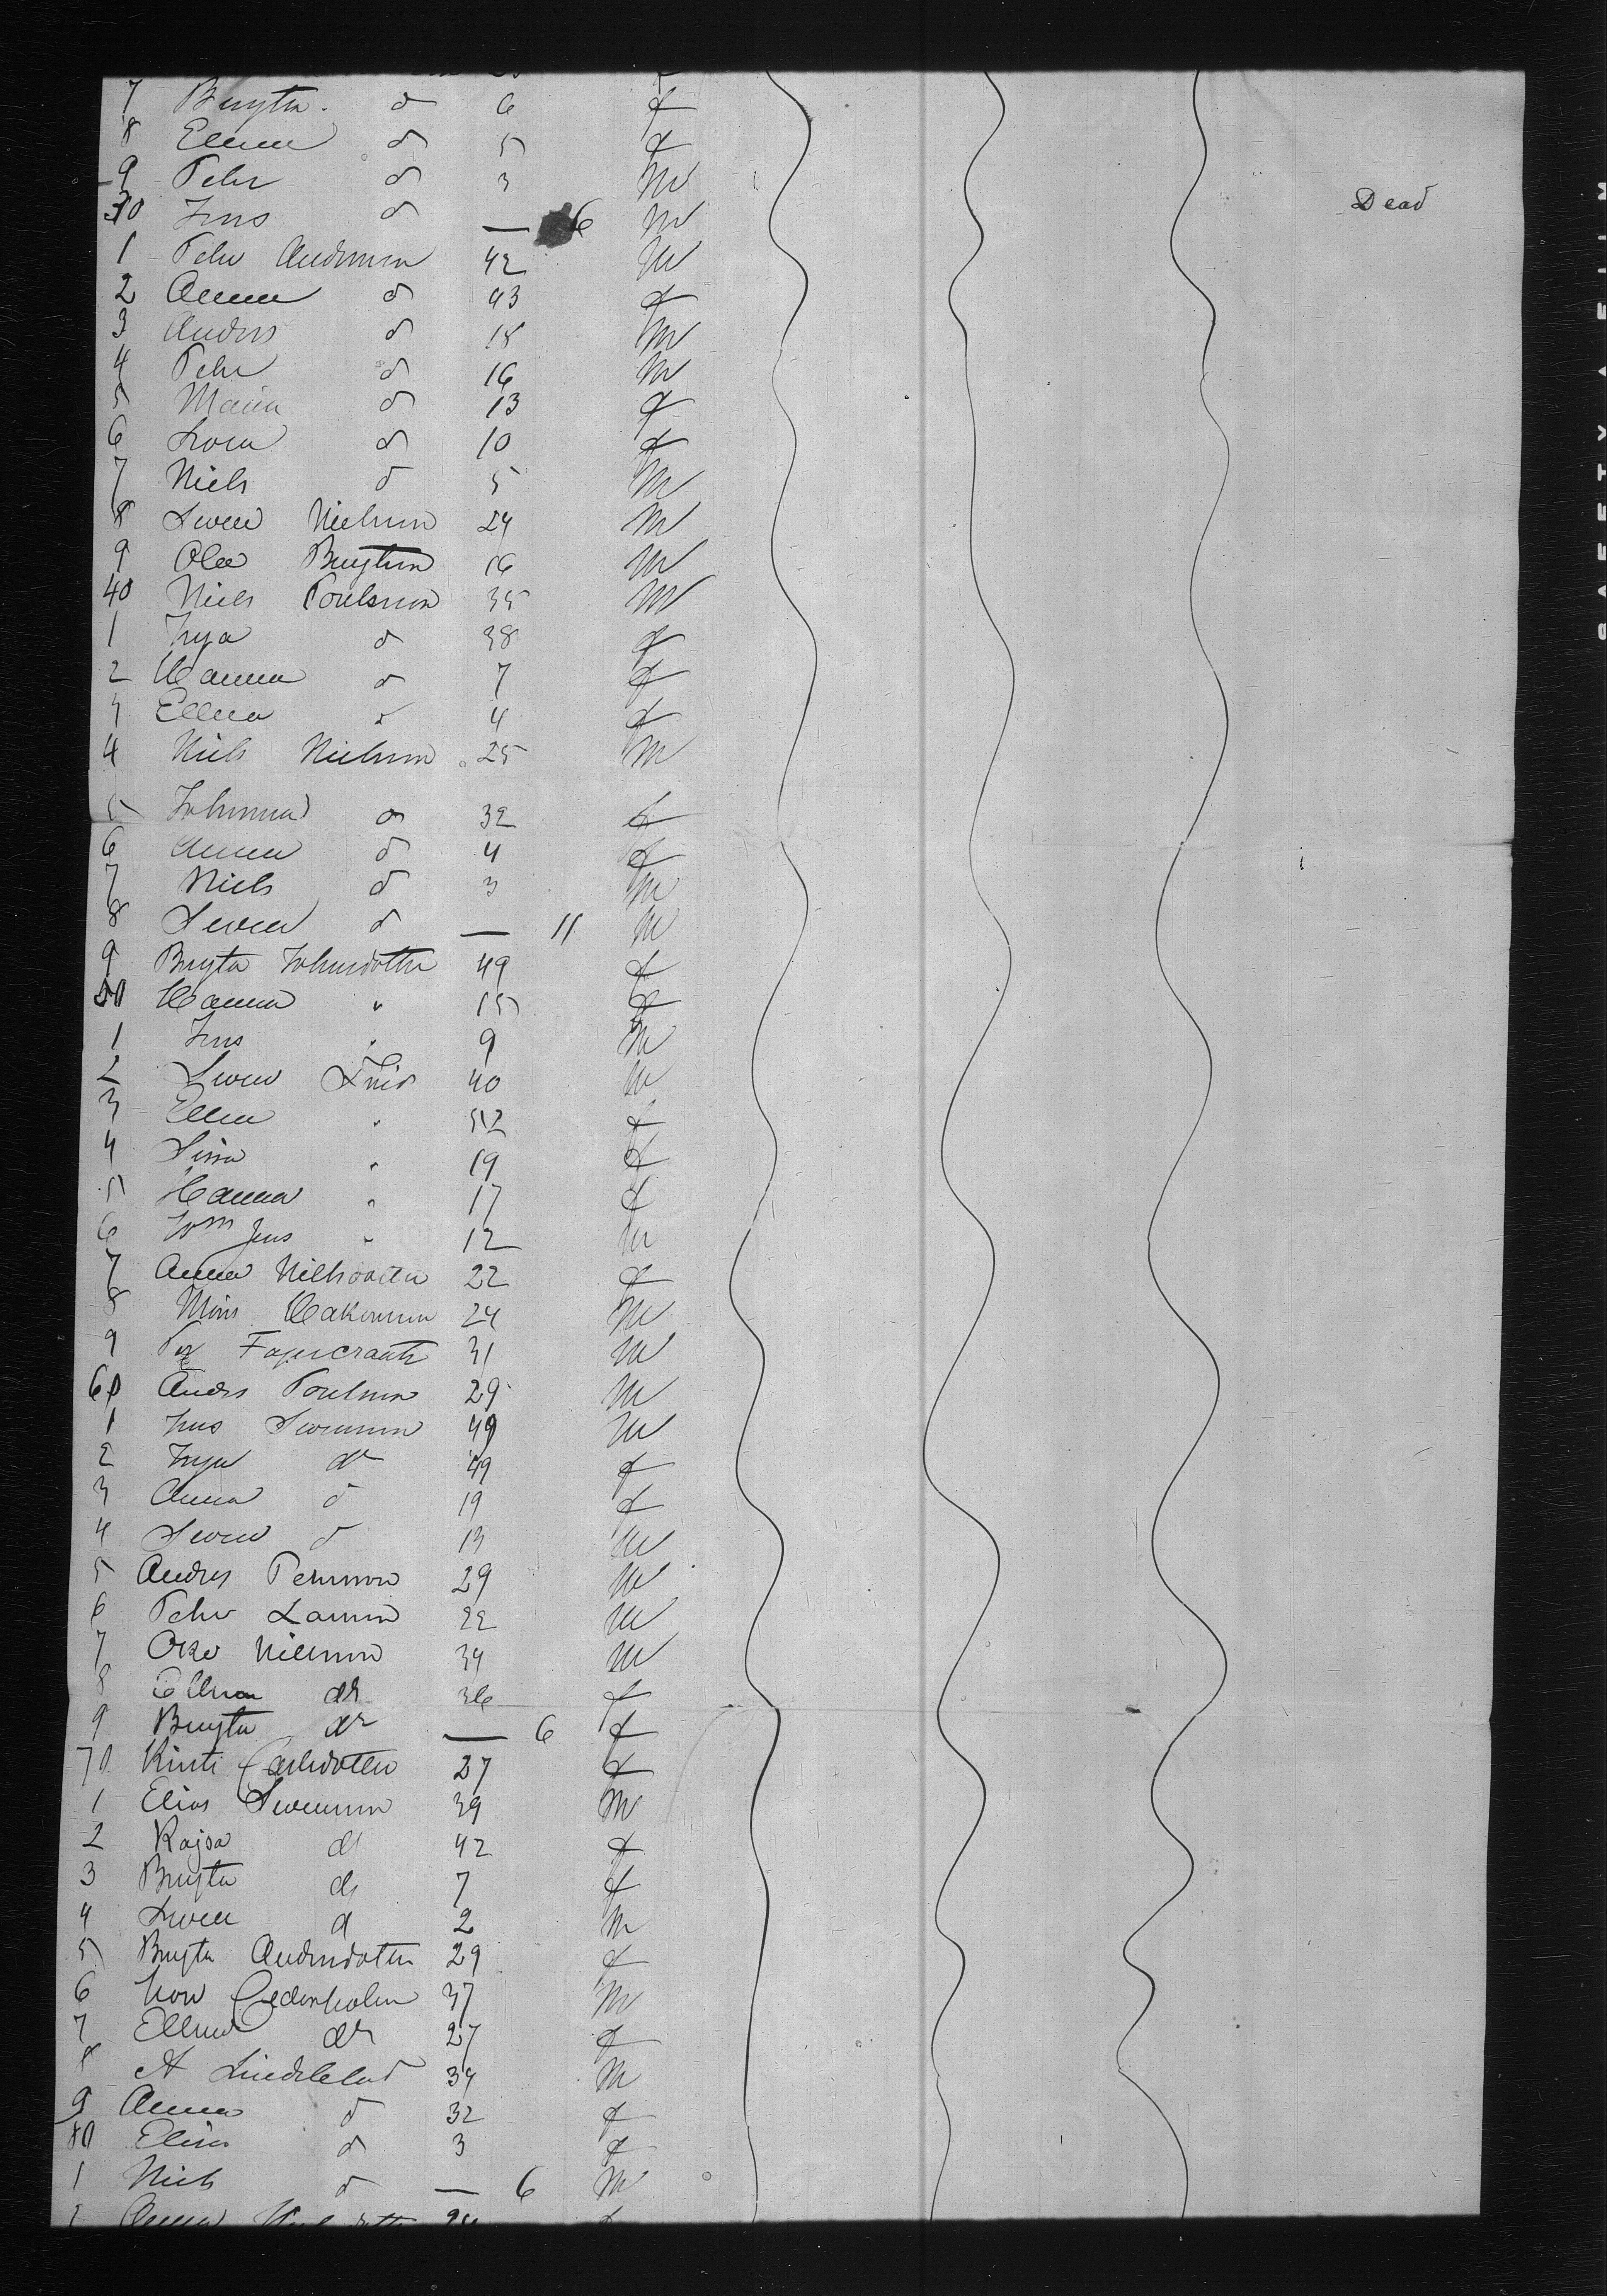 7 Bengta d 6 f
8 Elena d 5 f
9 Pehr d 3 m
30 Jens d — 6 m Dead
1 Pehr Anderson 42 m
2 Anna d 43 f
3 Anders d 18 m
4 Pehr d 16 m
5 Maria d 13 f
6 d 10 f
7 Niels d 5 m
8 Swen Nielsson 24 m
9 Ole Bengtson 16 m
40 Niels Poulsson 35 m
1 Inga d 38 f
2 Hanna d 7 f
3 Ellena d 4 f
4 Niels Nielsson 25 m
5 Johanna d 32 f
6 Anna d 4 f
7 Niels d 3 m
8 Swen d — 11 m
9 Bengta Johnsdotter 49 f
50 Hanna " 15 f
1 Jens " 9 m
2 Swen 40 m
3 Ellen " 52 f
4 Sissa " 19 f
5 Hanna " 17 f
6 Wm Jens " 12 m
7 Anna Nielsdotter 22 f
8 Mons Hakonson 24 m
9 Per Fagercrantz 31 m
60 Anders Poulson 29 m
1 Jens Swenson 49 m
2 Inga do 49 f
3 Anna d 19 f
4 Swen d 13 m
5 Andrs Pehrsson 29 m
6 Pehr Larsson 22 m
7 Oke Nielsson 34 m
8 Ellena do 36 f
9 Bengta do — 6 f
70 Kirsti Carlsdotter 27 f
1 Elias Swensson 39 m
2 Kajsa d 42 f
3 Bengta d 7 f
4 Swen d 2 m
5 Bengta Andersdotter 29 f
6 Cedarholm 37 m
7 Ellena do 27 f
8 A Lindblad 34 m
9 Anna d 32 f
80 Elin d 3 f
1 Niels d — 6 m
2 Anna f
SAFETY FILM